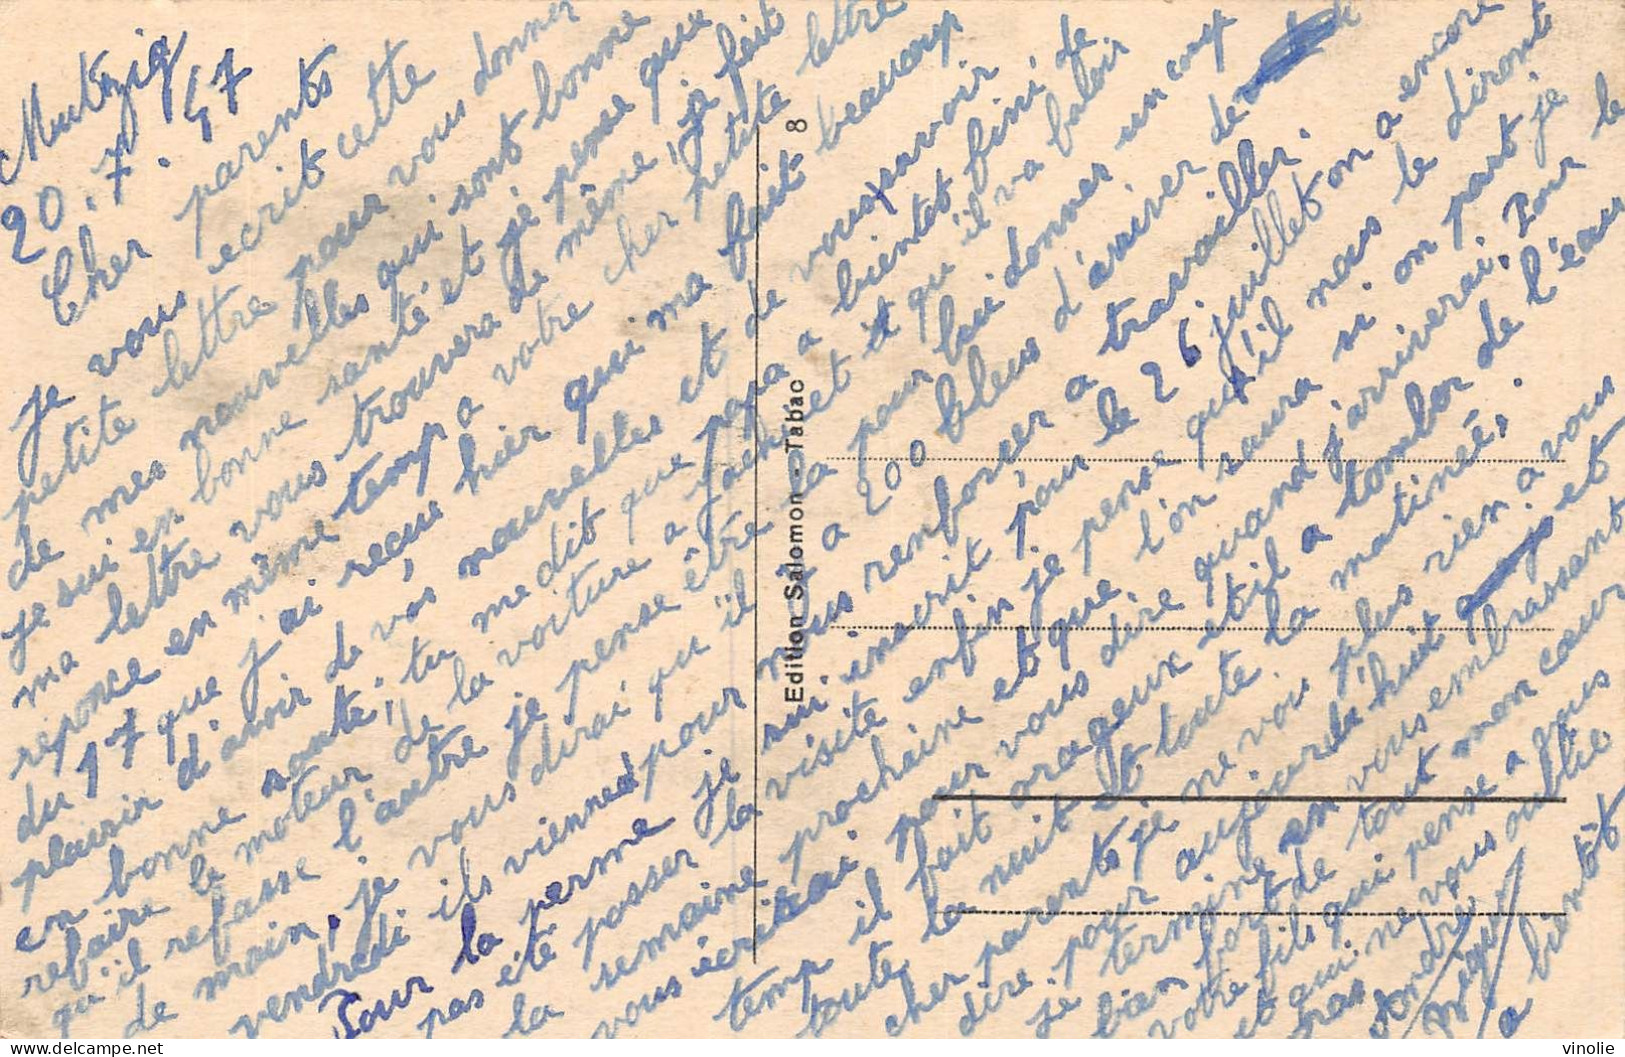 Mutzig
20.7.47
Cher parents
je vous ecrit cette
petite lettre pour vous donner
de mes nouvelles qui sont bonne
je sui en bonne santé et je pense que
ma lettre vous trouvera de même, je fait
reponce en même temp a votre cher petite lettre
du 17 que j'ai reçue hier qui ma fait beaucoup
plaisir d'avoir de vos nouvelles et de vous savoir
en bonne santé, tu me dit que papa a bientot fini de
refaire le moteur de la voiture a Jacki et qu'il va faloir
qu'il refasse l'autre je pense être la pour lui donner un coup
de main, je vous dirai qu'il y a 200 bleus d'arriver de
vendredi ils viennes pour nous renforcer a travailler.
Pour la perme je sui inscrit pour le 26 juillet on a encore
pas été passer la visite enfin je pense qu'il nous le diront
la semaine prochaine et que l'on saura si on part je
vous écriteai pour vous dire quand j'arriverai. Pour le
temp il fait orageux et il a tombor de l'eau
toute la nuit et toute la matinée.
cher parents je ne vou plus rien a vous
dire pour aujourd'huit et
je termine en vous embrassant
bien fort de tout mon cœur
votre fils qui pense a vous
et qui ne vous oublie
pas
André
a bientôt
Edition Salomon - Tabac
8
vinolie